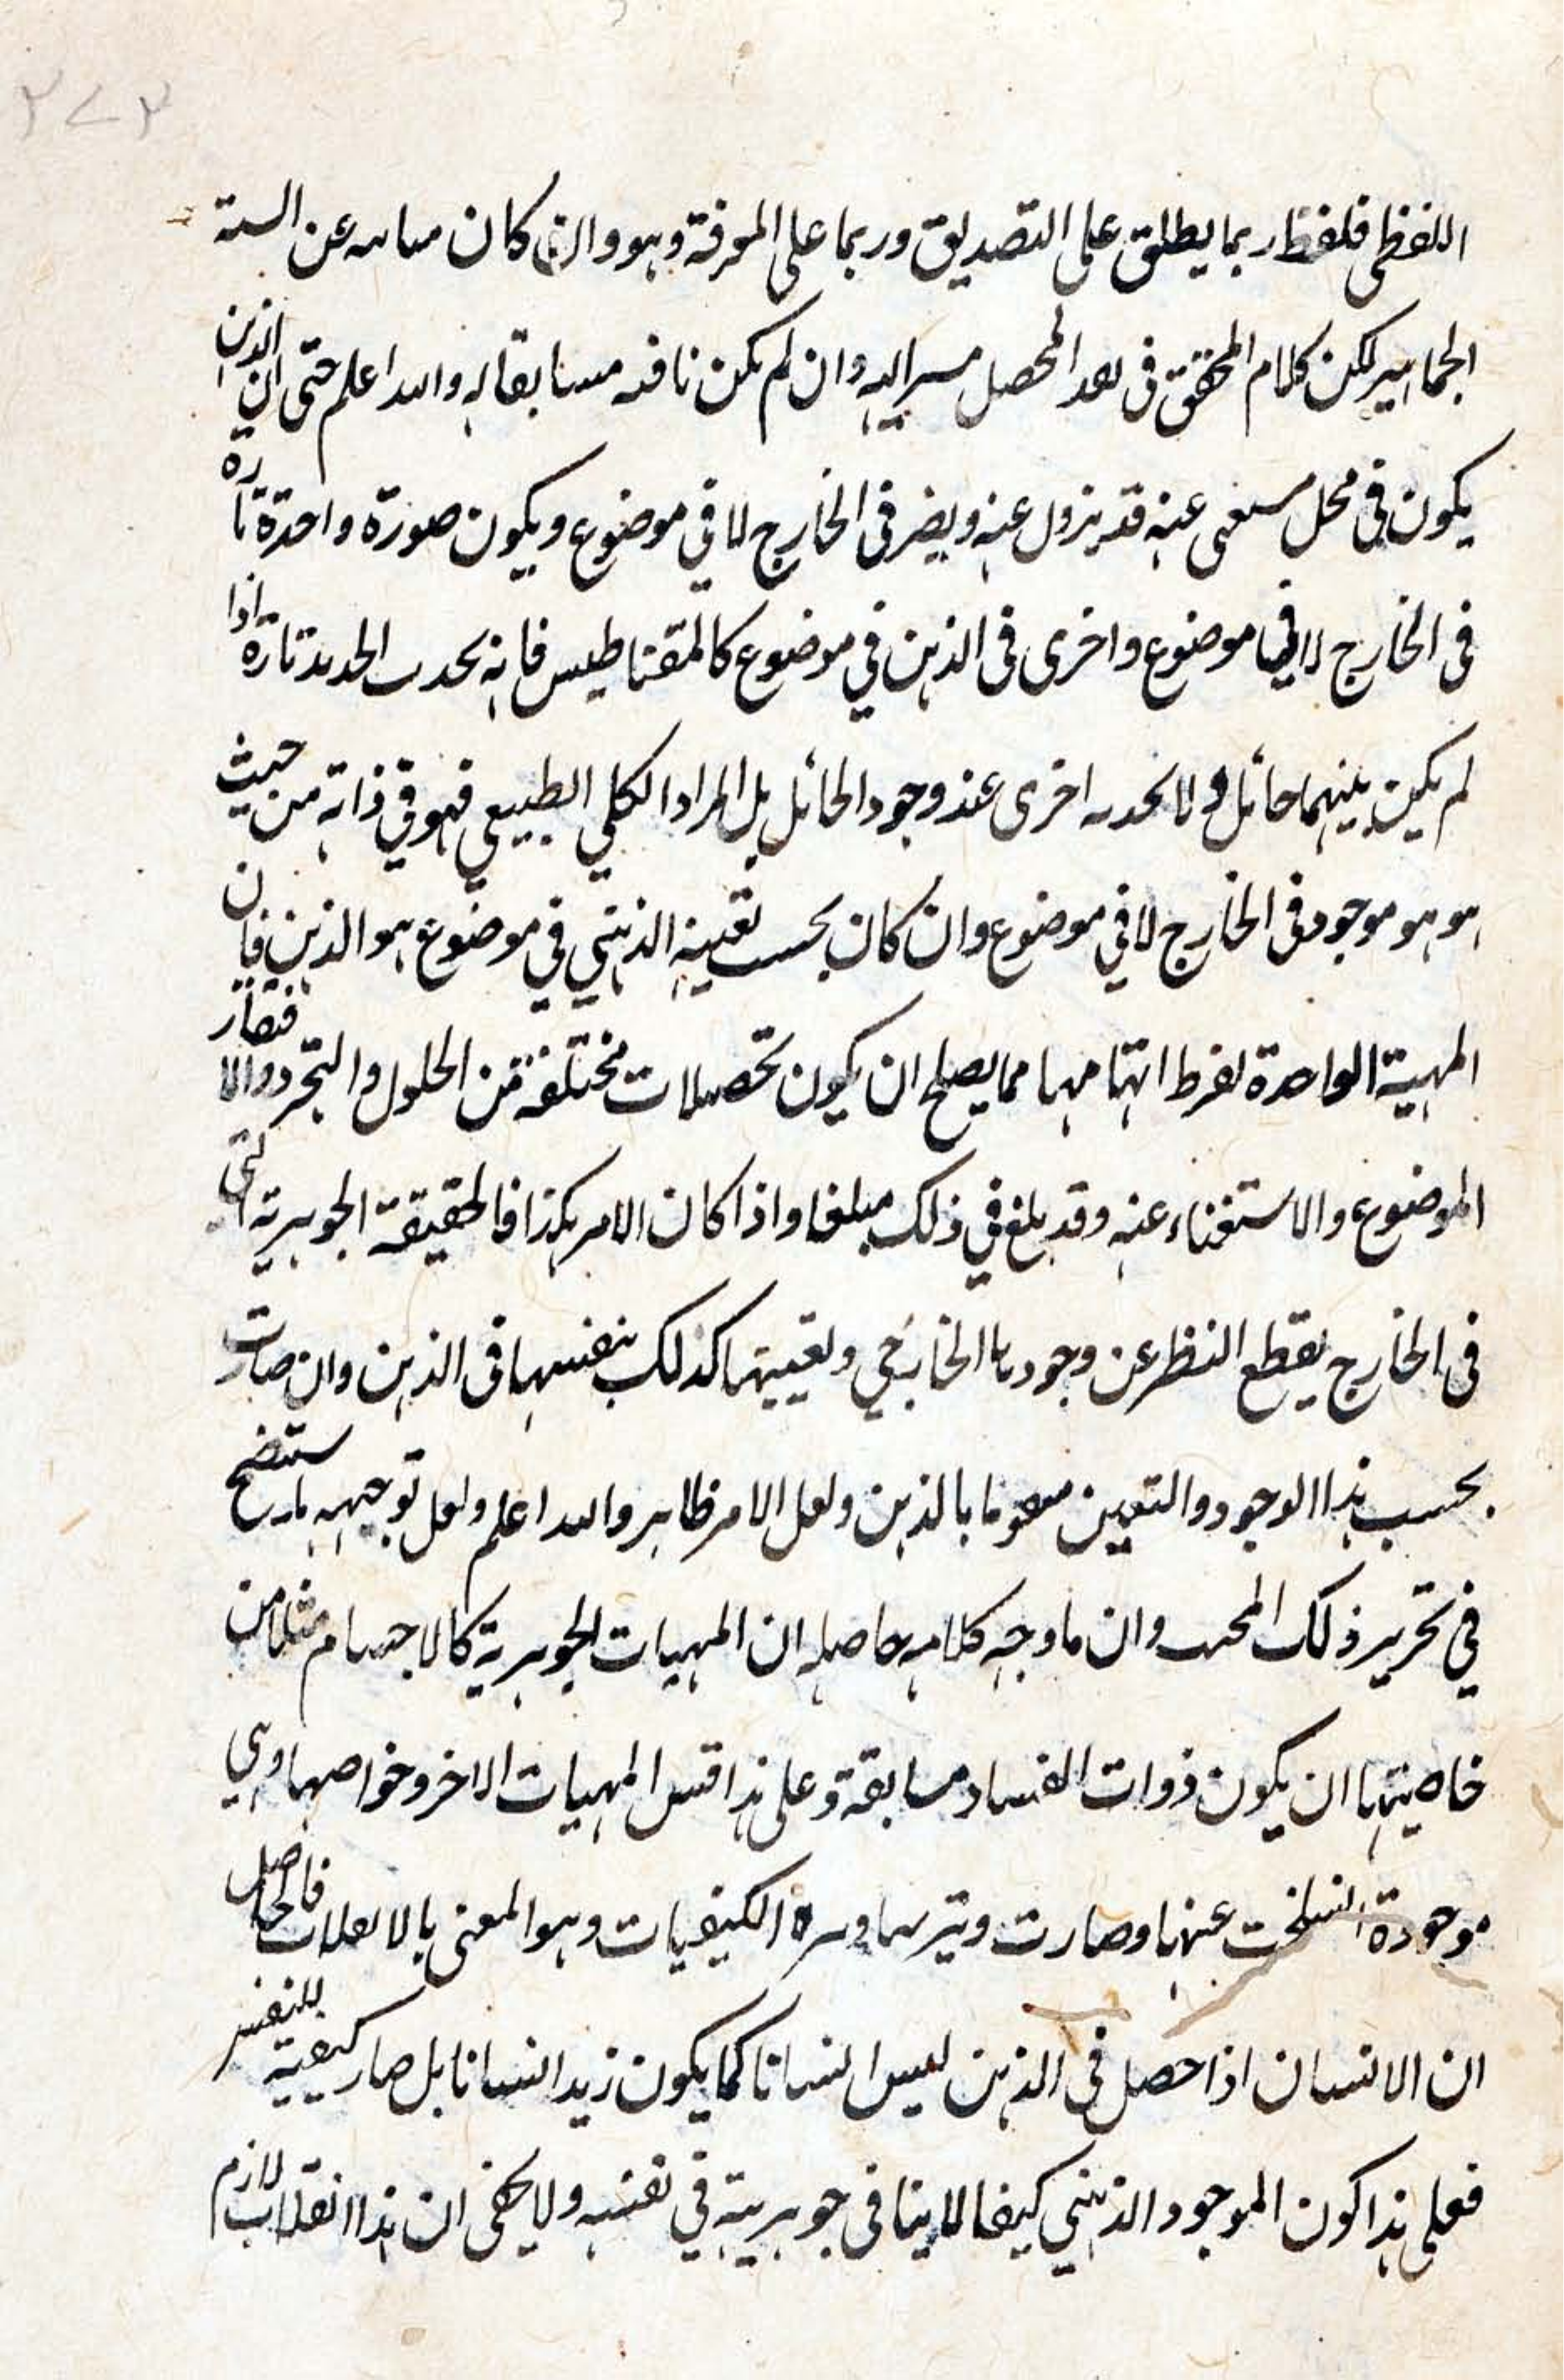 ٢٧٣
اللفظى فلفظ ربما يطلق على التصديق وربما على المعرفة وهو وان كان عن السنة
الجماهير لكن كلام المحقق فى المحصل اليه وان لم يكن له والله اعلم حتى ان الذين
يكون فى محل عنه قد يزول عنه و فى الخارج لا فى موضوع ويكون صورة واحدة تارة
فى الخارج لا فى موضوع واخرى فى الذهن فى موضوع كالمقناطيس فانه يحدب الحديد تارة اذا
لم يكن بينهما حائل ولا يحدبه اخرى عند وجود الحائل بل المراد الكلي الطبيعي فهو في ذاته من حيث
هو هو موجود فى الخارج لا في موضوع وان كان بحسب تعينه الذهني في موضوع هو الذهن فان
المهية الواحدة لفرط ابهامها مما يصلح ان يكون تحصلات مختلفة من الحلول والتجرد والافتقار
الموضوع والاستغناء عنه وقد بلغ في ذلك مبلغا واذا كان الامر هكذا فالحقيقة الجوهرية التى
فى الخارج بقطع النظر عن وجودها الخارجي وتعيينها كذلك بنفسها فى الذهن وان صارت
بحسب هذا الوجود والتعين بالذهن ولعل الامر ظاهر والله اعلم ولعل توجيهه ستضح
في تحرير ذلك المحب وان ما وجه كلامه حاصله ان المهيات الجوهرية كالاجسام مثلا من
خاصيتها ان يكون ذوات وعلى هذا قس المهيات الاخر وخواصها وهى
موجودة انسلخت عنها وصارت الكيفيات وهو المعنى بالانقلاب فالحاصل
ان الانسان اذا حصل فى الذهن ليس انسانا كما يكون زيد انسانا بل صار كيفية للنفس
فعلى هذا كون الموجود الذهني كيفا لا ينافى جوهريته في نفسه ولا يخفى ان هذا انقلاب لازم